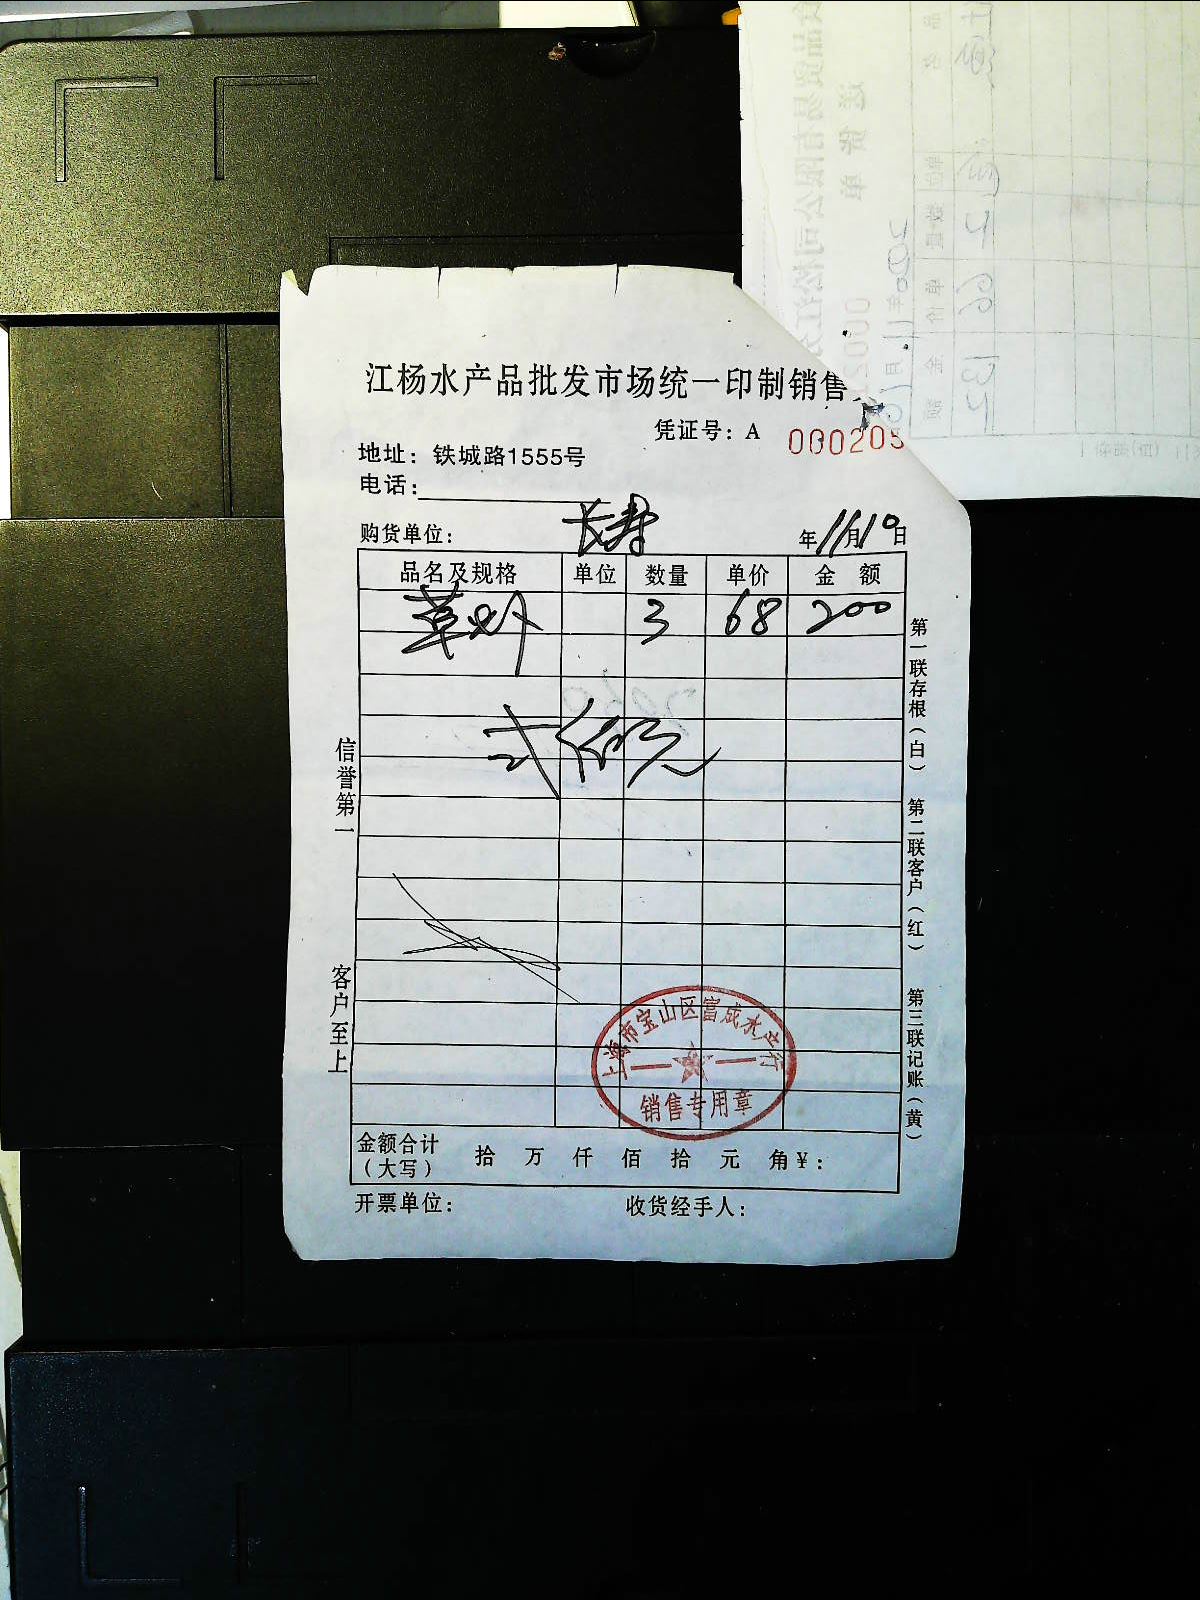 江杨水产品批发市场统一印制销售
凭证号：A 000205
地址：铁城路1555号
电话：
购货单位： 长寿 年11月10日
品名及规格 单位 数量 单价 金额
草虾 3 68 200
弍佰元
信誉第一
客户至上
第一联存根（白）
第二联客户（红）
第三联记账（黄）
上海市宝山区富成水产行
销售专用章
金额合计（大写） 拾 万 仟 佰 拾 元 角 ¥：
开票单位： 收货经手人：